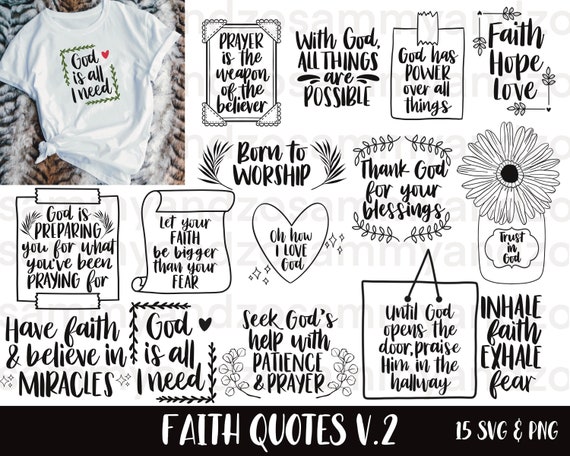 God
is all
I need
PRAYER
is the
weapon
of the
believer
With God,
ALL THINGS
are
POSSIBLE
God has
POWER
over all
things
Faith
Hope
Love
Born to
WORSHIP
Thank God
for your
blessings
Trust
in
God
God is
PREPARING
you for what
you've been
PRAYING for
Let your
FAITH
be bigger
than your
FEAR
Oh how
I LOVE
God
Have faith
& believe in
MIRACLES
God
is all
I need
Seek God's
help with
PATIENCE
& PRAYER
Until God
opens the
door, praise
Him in the
hallway
INHALE
faith
EXHALE
fear
FAITH QUOTES V.2
15 SVG & PNG